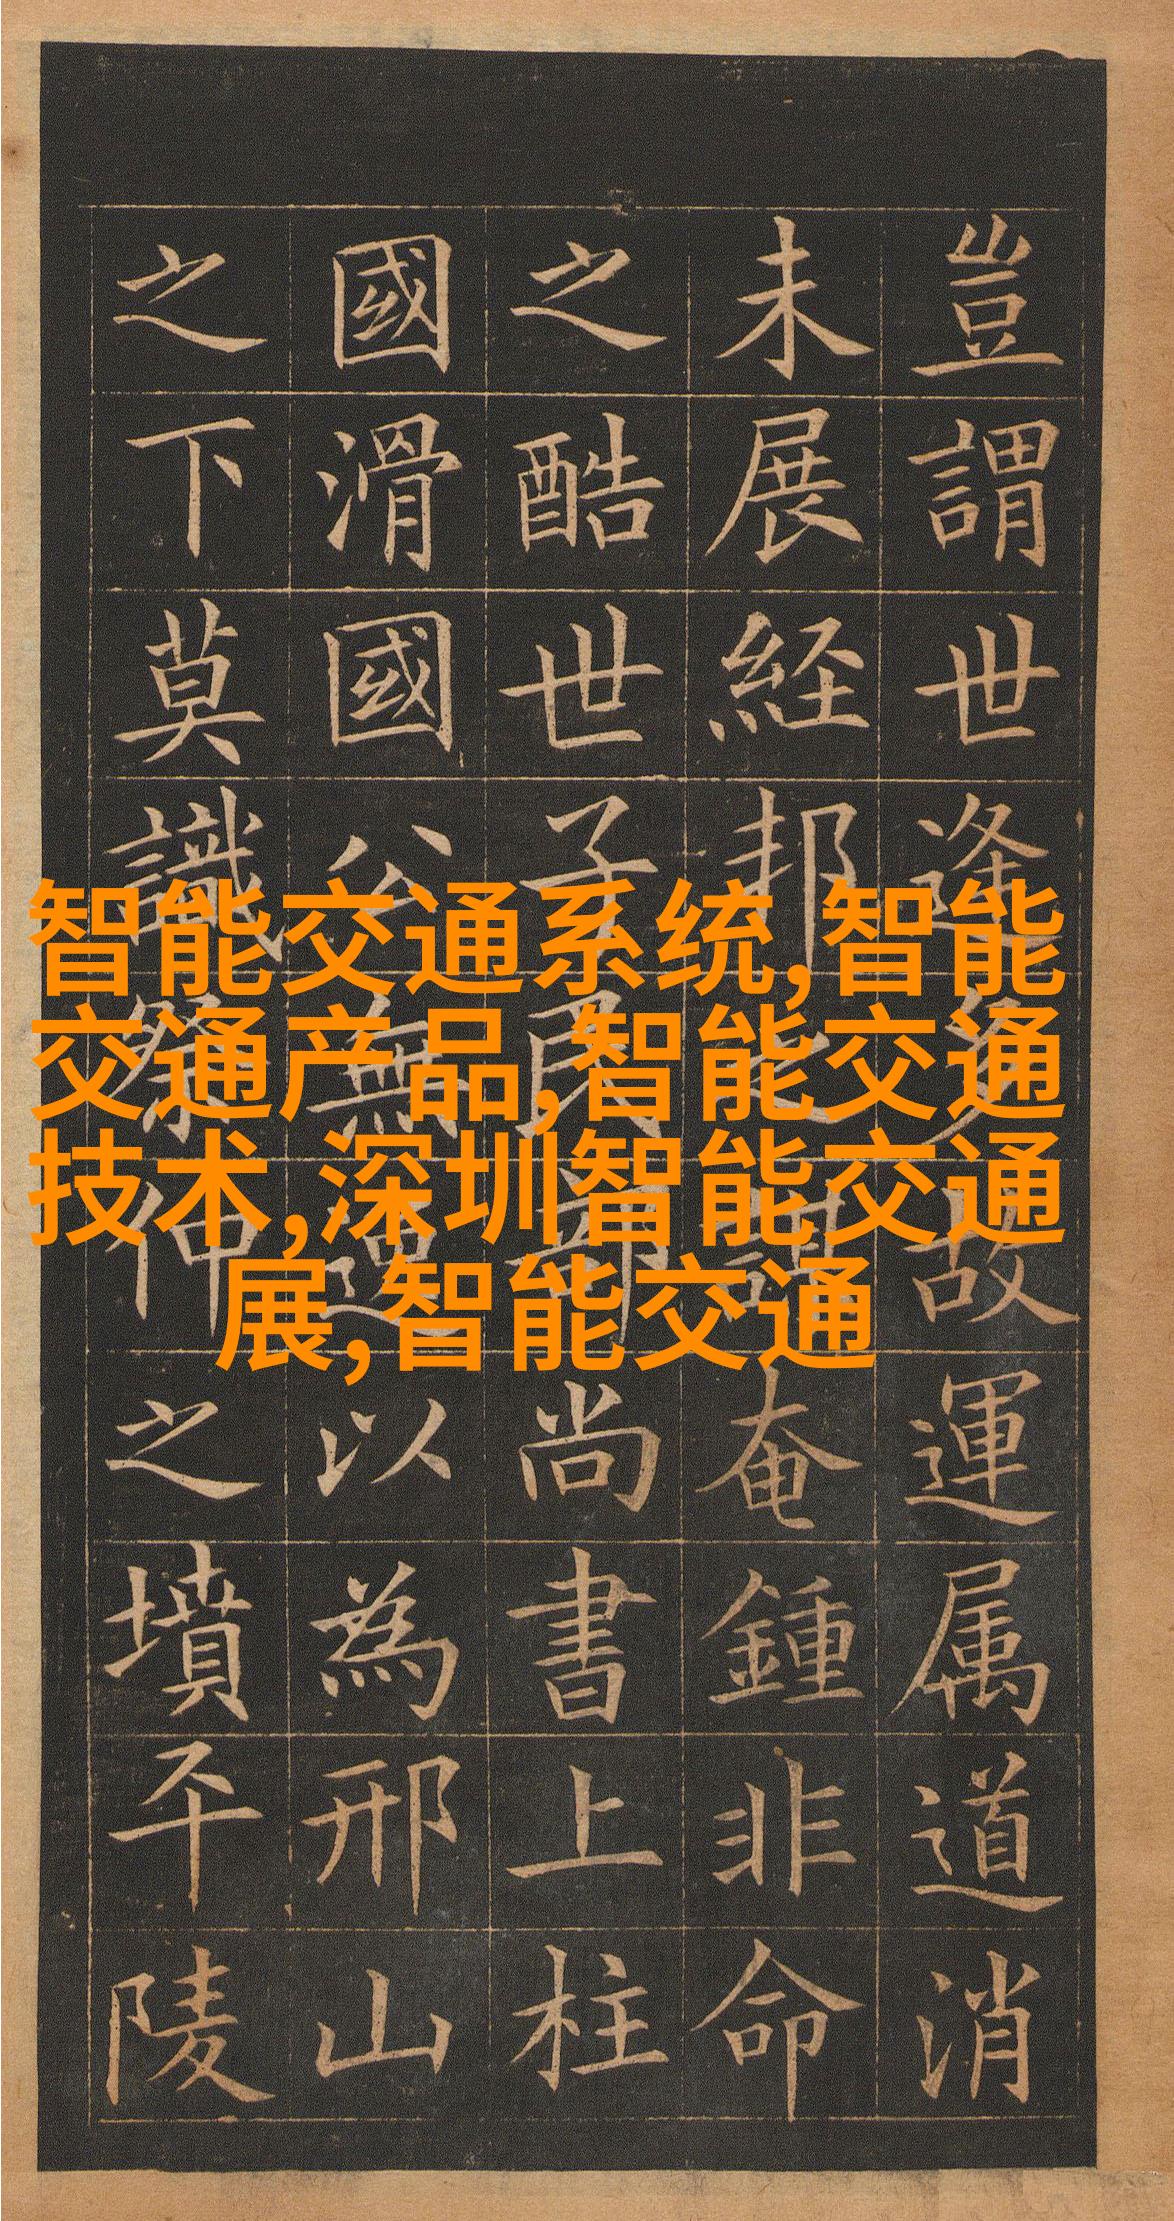 豈謂世逢多故運属道消
未展経邦之謀奄鍾非命
之酷世子民部尚書上柱
國滑國公無逸以為邢山
之下莫識祭仲之墳平陵
智能交通系统,智能
交通产品,智能交通
技术,深圳智能交通
展,智能交通